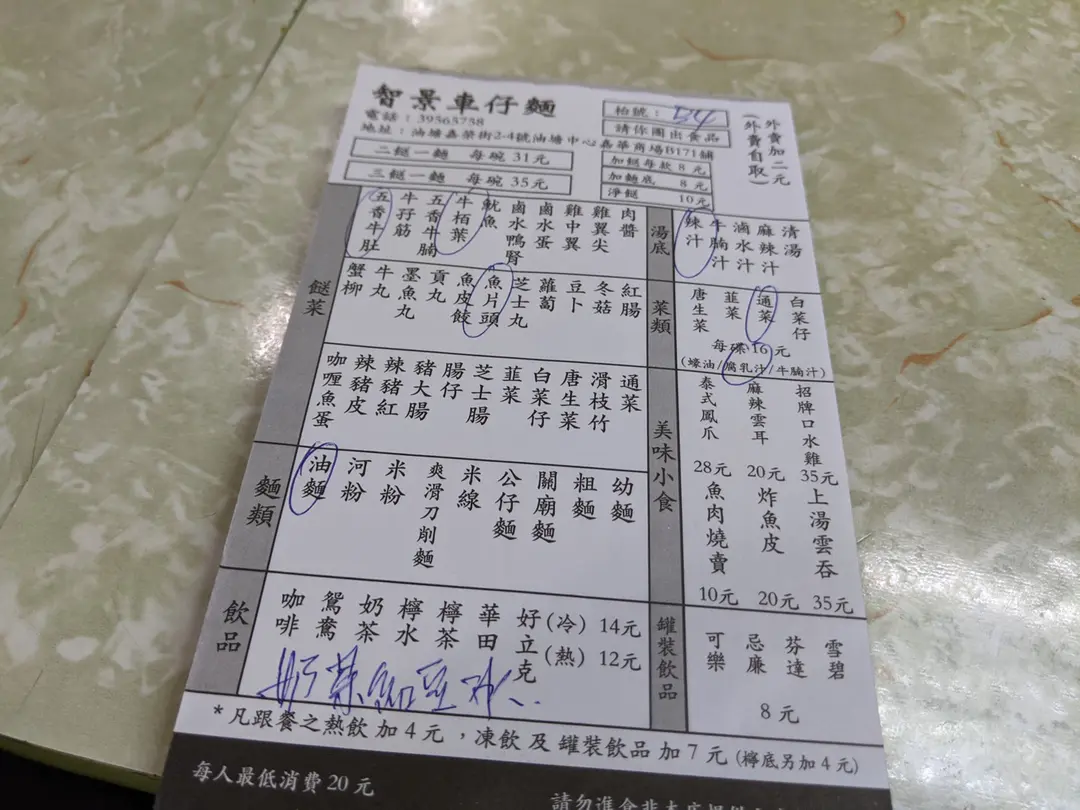 智景車仔麵
電話：39565758
地址：油塘嘉榮街2-4號油塘中心嘉華商場B171舖
枱號：B4
請你圈出食品
外賣加二元
（外賣自取）
二餸一麵 每碗 31元
三餸一麵 每碗 35元
加餸每款 8元
加麵底 8元
淨餸 10元
餸菜
五香牛肚
牛孖筋
五香牛腩
牛栢葉
魷魚
鹵水鴨腎
鹵水蛋
雞中翼
雞翼尖
肉醬
蟹柳
牛丸
墨魚丸
貢丸
魚皮餃
魚片頭
芝士丸
蘿蔔
豆卜
冬菇
紅腸
咖喱魚蛋
辣豬皮
辣豬紅
豬大腸
腸仔
芝士腸
韮菜
白菜仔
唐生菜
滑枝竹
通菜
麵類
油麵
河粉
米粉
爽滑刀削麵
米線
公仔麵
關廟麵
粗麵
幼麵
飲品
咖啡
鴛鴦
奶茶
檸水
檸茶
華田
好立克
（冷）14元
（熱）12元
湯底
辣汁
牛腩汁
滷水汁
麻辣汁
清湯
菜類
唐生菜
韮菜
通菜
白菜仔
每碟16元
（蠔油/腐乳汁/牛腩汁）
美味小食
泰式鳳爪 28元
麻辣雲耳 20元
招牌口水雞 35元
魚肉燒賣 10元
炸魚皮 20元
上湯雲吞 35元
罐裝飲品
可樂
忌廉
芬達
雪碧
8元
*凡跟餐之熱飲加4元，凍飲及罐裝飲品加7元（檸底另加4元）
每人最低消費20元